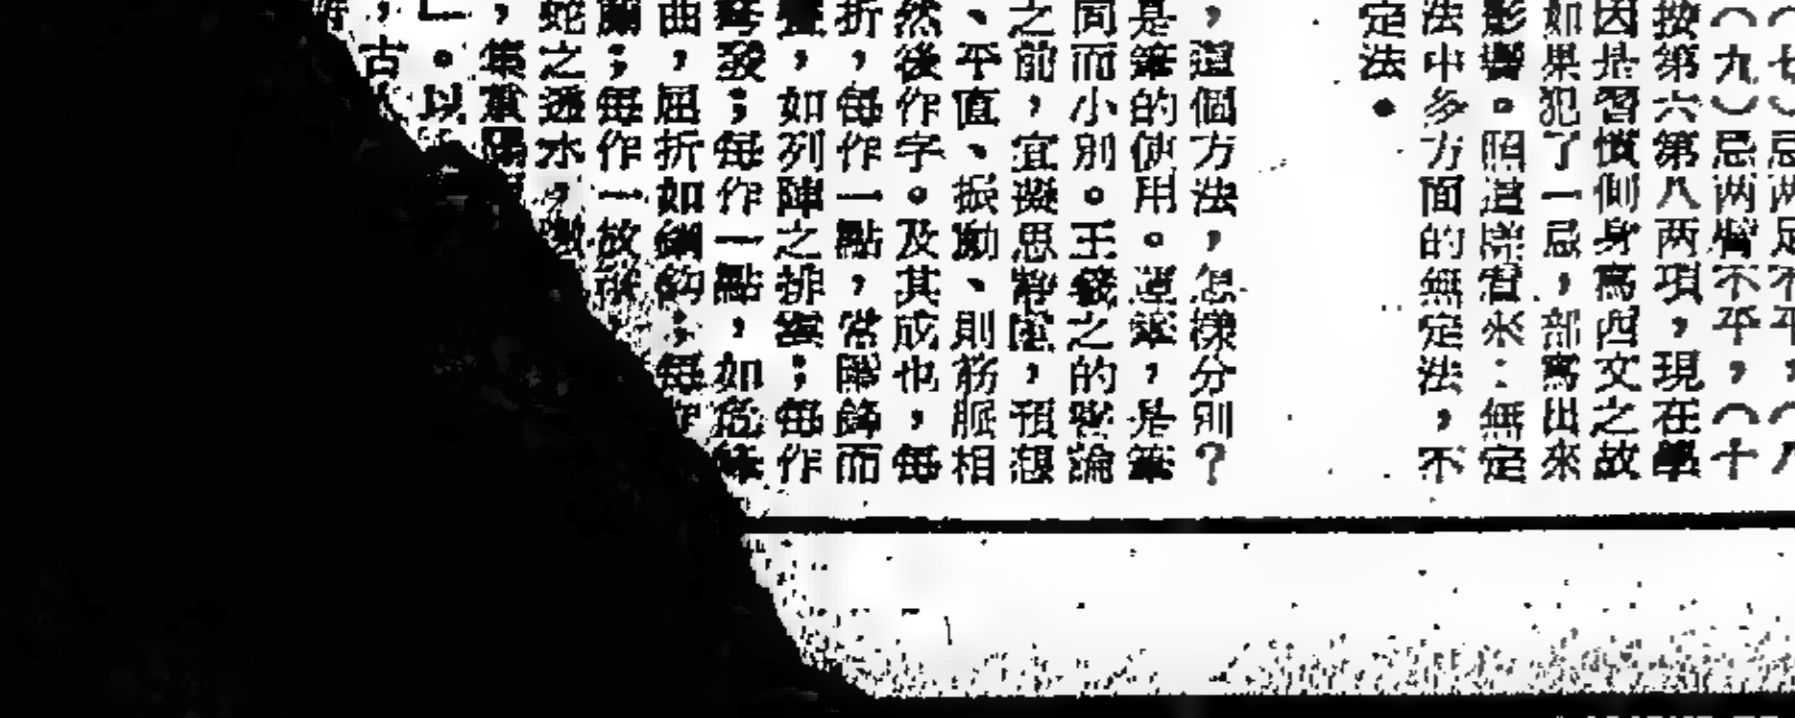 七）忌两足不平，（八
（九）忌两臂不平，（十
按第六第八两項，現在學
因是習慣側身寫西文之故
如果犯了一忌，部寫出來
影響。照這樣看來：無定
法中多方面的無定法，不
定法。
，這個方法，怎樣分別？
是筆的使用。運筆，是筆
同而小別。王羲之的筆論
之前，宜凝思靜慮，預想
、平直、振動、則筋脈相
然後作字。及其成也，每
折，每作一點，常隱鋒而
，如列陣之排雲；每作
發；每作一點，如危
曲，屈折如鋼鈎；每作
；每作一放
蛇之透水，
，集
。以
，古